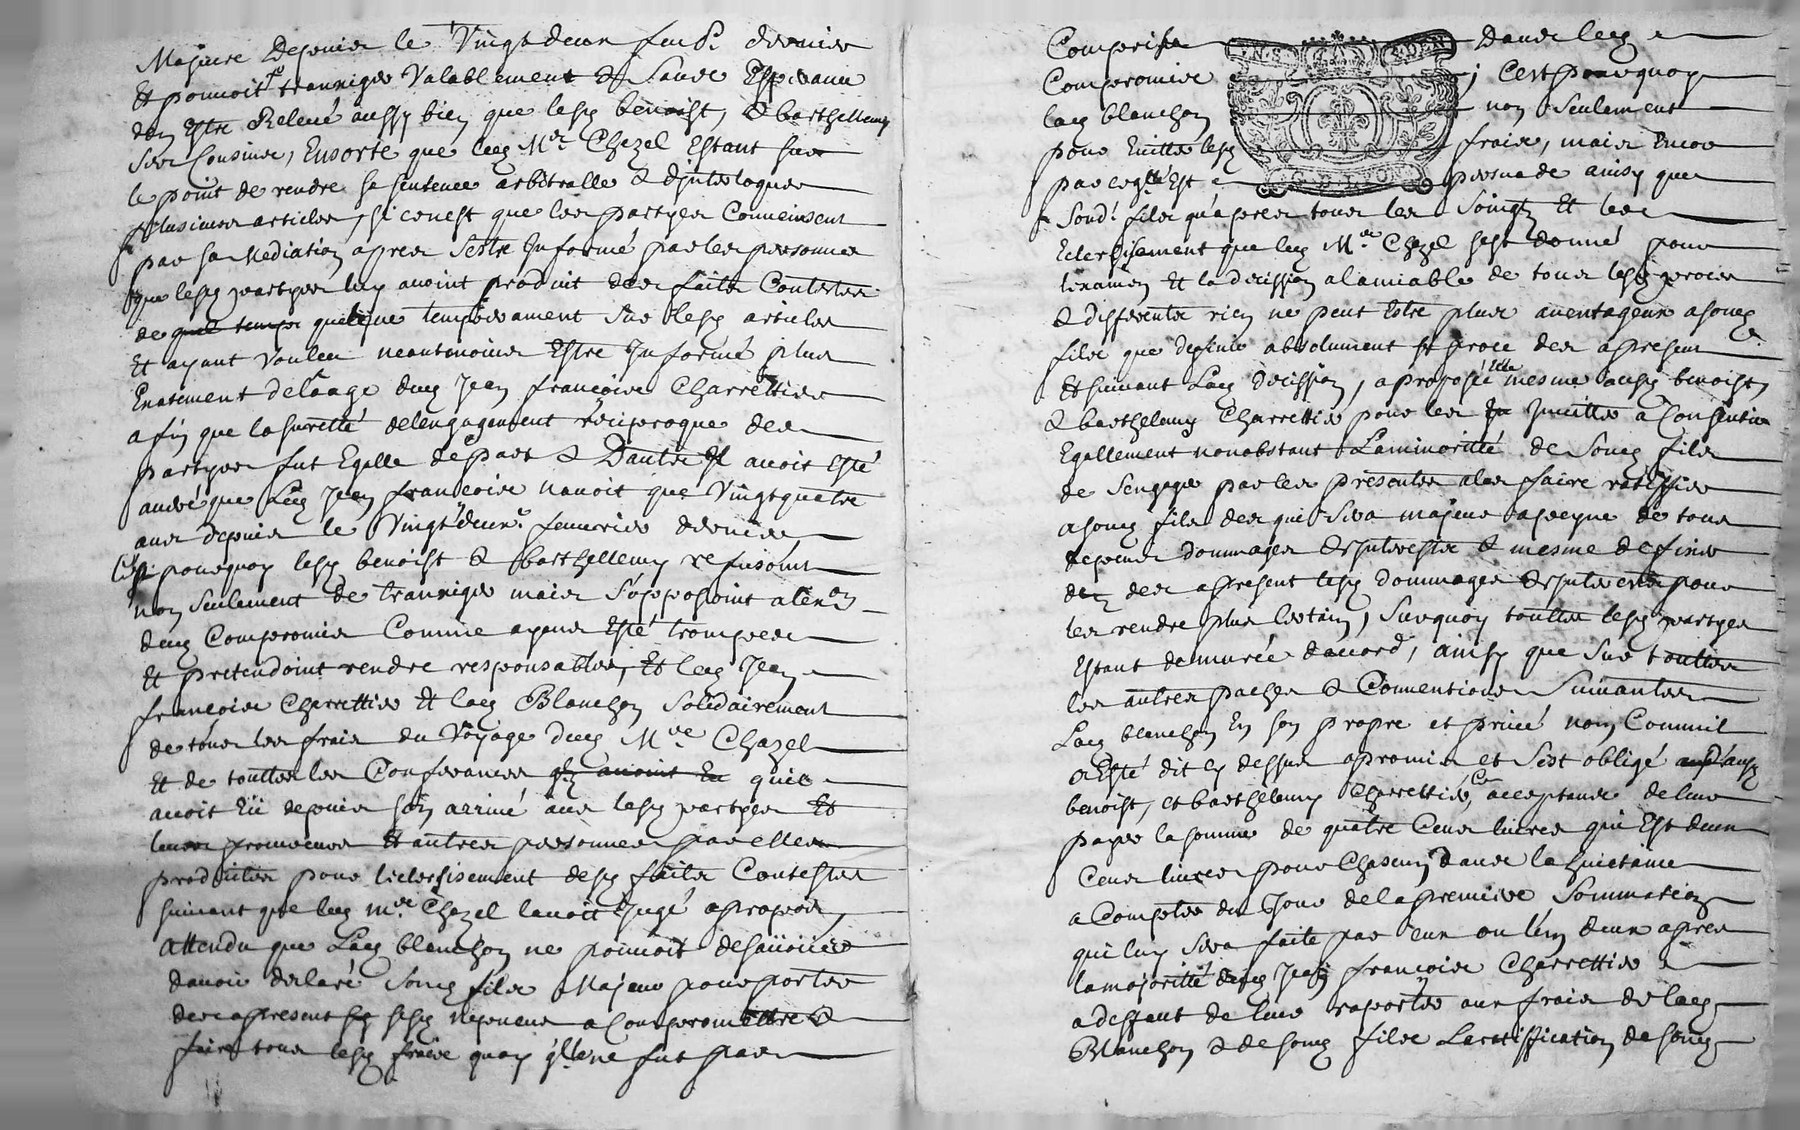 Majeure Depuis le Vingt deux dernier
Et pouvoit transiger Valablement Et Sans Esperance
den Estre Relevé aussy bien que lesd benoist, & barthellemy
Ses Cousins, Ensorte que led Mre Chazel Estant sur
le point de rendre sa sentence arbitralle & dinterloquer
plusieurs articles, si cenest que les partyes Convinsent
par sa Mediation apres sestre Informé par les personnes
que lesd partyes luy avoint produit des faits Contestes
de quel temps quelque temperament Sur lesd articles
Et ayant Vouleu neantmoins Estre Informé plus
Exatement delaage dud Jean françois Charrettier
afin que la suretté delengagement reciproque des
partyes fut Egalle de part & Dautre Il avoit Esté
averé que Led Jean françois navoit que Vingt quatre
ans depuis le Vingt deuxe fevvrier dernier
Cest pourquoy lesd benoist & barthellemy refusoint
non seulement de transiger mais s'opposoint
dud Compromis Comme ayans Esté trompes
Et pretendoint rendre responsables, Et led Jean
françois Charrettier Et lad Blanchon Solidairement
de tous les frais du Voyage dud Mre Chazel
Et de touttes les Conferances avoint Eu quil
avoit Eü depuis son arrivé aux lesd partyes Et
leurs Et autres personnes par elles
produites pour leclersisement desd faits Contestes
suivant que led mre Chazel lavoit Jugé apropos,
attendu que Lad blanchon ne pouvoit desavoüer
davoir declaré Soud fils Majeur pour porter
des apresent sesd Nepveux a Compromettre &
faire tous lesd frais quoy quil ne fut pas
Comprise Dans led
Compromis ; Cest pourquoy
lad blanchon non seulement
pour Eviter lesd frais, mais Encor
par Est persuade ainsy que
Sond. fils qu'apres tous les Soings Et les
Eclersisement que led Mre Chazel sest donné pour
lexamen Et la decission alamiable de tous lesd proces
& differents rien ne peut Estre plus aventageux asoud
fils que definir absolument se proces des apresent
Et suivant Lad Decission, a proposé Elle mesme ausd benoist,
& barthelemy Charrettier pour les Inviter a Consentir
Egallement nonobstant Laminoritté de Soud fils
de sengager par les presentes ales faire ratiffier
asoud fils des qui sera majeur apeyne de tous
depens dommages & Interests & mesme definir
des apresent lesd dommages & Interests pour
les rendre plus Certain, Surquoy touttes lesd partyes
Estant demurée daccord, ainsy que sur touttes
les autres paches & Conventions Suivantes
Lad blanchon En son propre et privé nom Comme Il
a Esté dit cy dessus apromis et sest obligé ausd
benoist, et barthelemy Charrettier, Ce acceptans de leur
payer la somme de quatre Cens livres qui Est deux
Cens livres pour Chascun dans la huictaine
a Compter du Jour delapremiere Sommation
qui luy sera faite par lun ou leur deux apres
lamajoritté dud Jean françois Charrettier
adeffaut de leur raporter aux frais de lad
Blanchon & de soud fils Laratiffication de soud